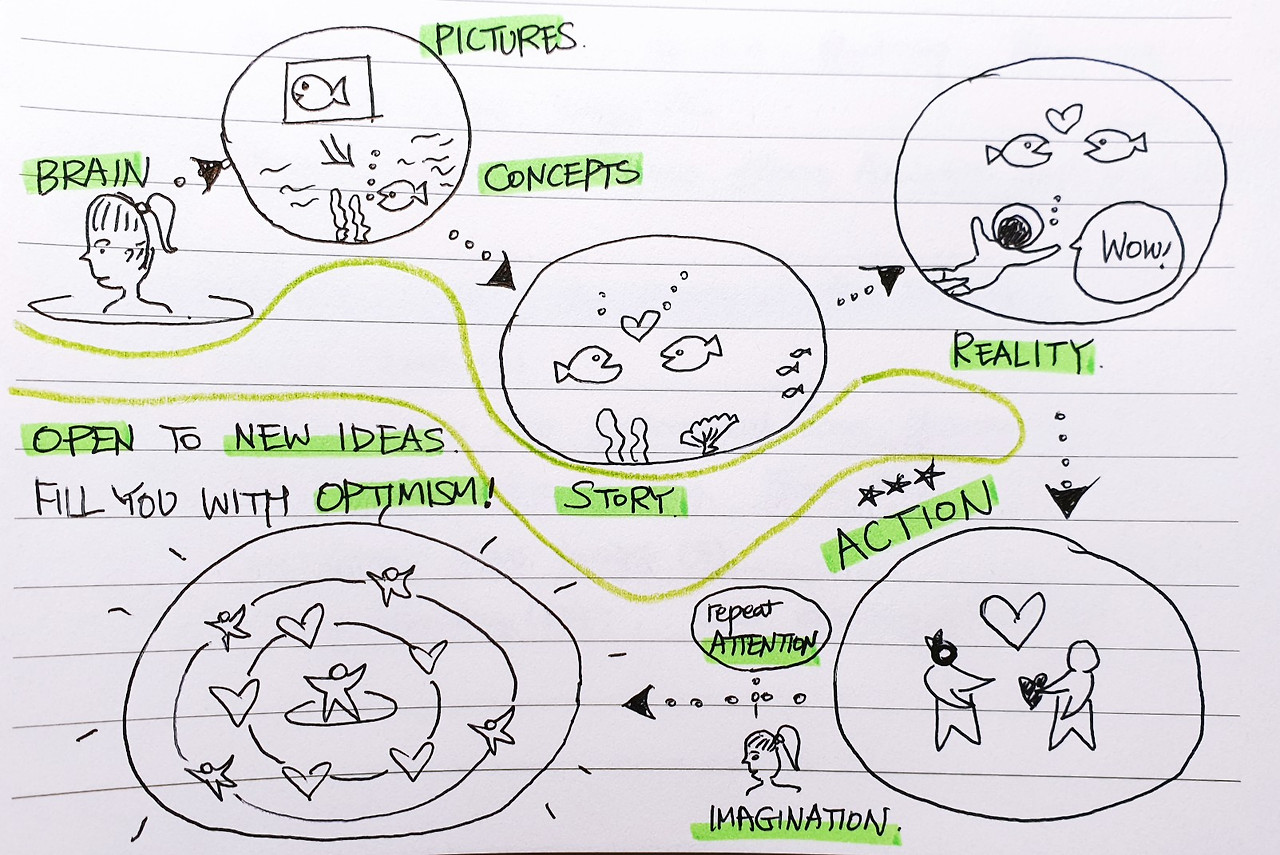 PICTURES.
BRAIN
CONCEPTS
WOW!
REALITY.
OPEN TO NEW IDEAS.
FILL YOU WITH OPTIMISM!
STORY.
ACTION
repeat
ATTENTION
IMAGINATION.